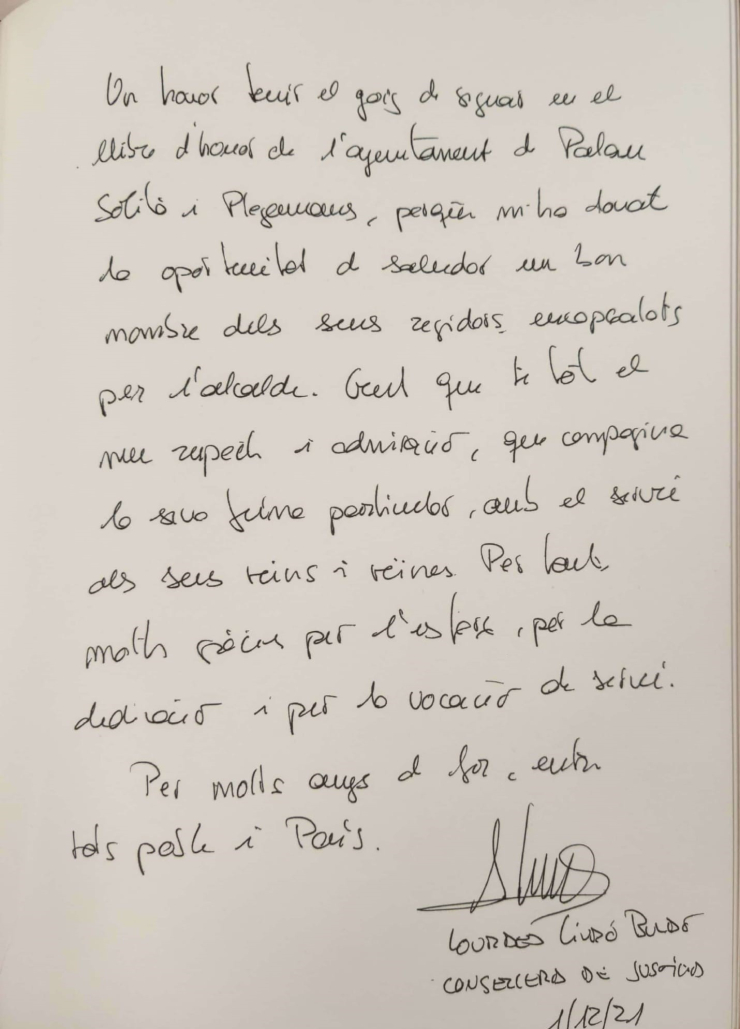 Un honor tenir el goig de signar en el
llibre d'honor de l'ajuntament de Palau
Solità i Plegamans, perquè m'ha donat
la oportunitat de saludar un bon
nombre dels seus regidors encapçalats
per l'alcalde. Gent que te tot el
meu respecte i admiració, que compagina
la seva feina particular, amb el servei
als seus veins i veïnes. Per tant,
moltes gràcies per l'esforç, per la
dedicació i per la vocació de servei.
Per molts anys de fer, entre
tots poble i País.
LOURDES CIURÓ BULDÓ
CONSELLERA DE JUSTICIA
1/12/21